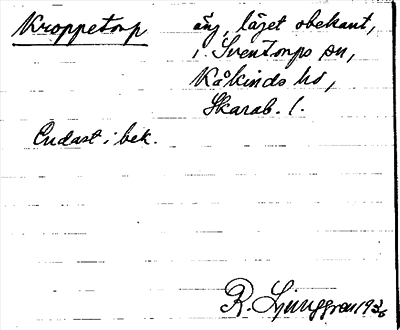 Kroppetorp äng, läget obekant,
i Sventorps sn,
Kåkinds hd,
Skarab. l.
Endast i bek.
R. Ljunggren 1936